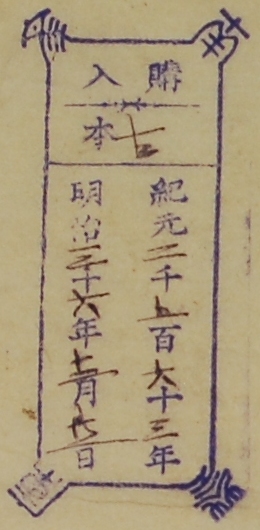 購入
古本
紀元二千五百六十三年
明治三十六年月日